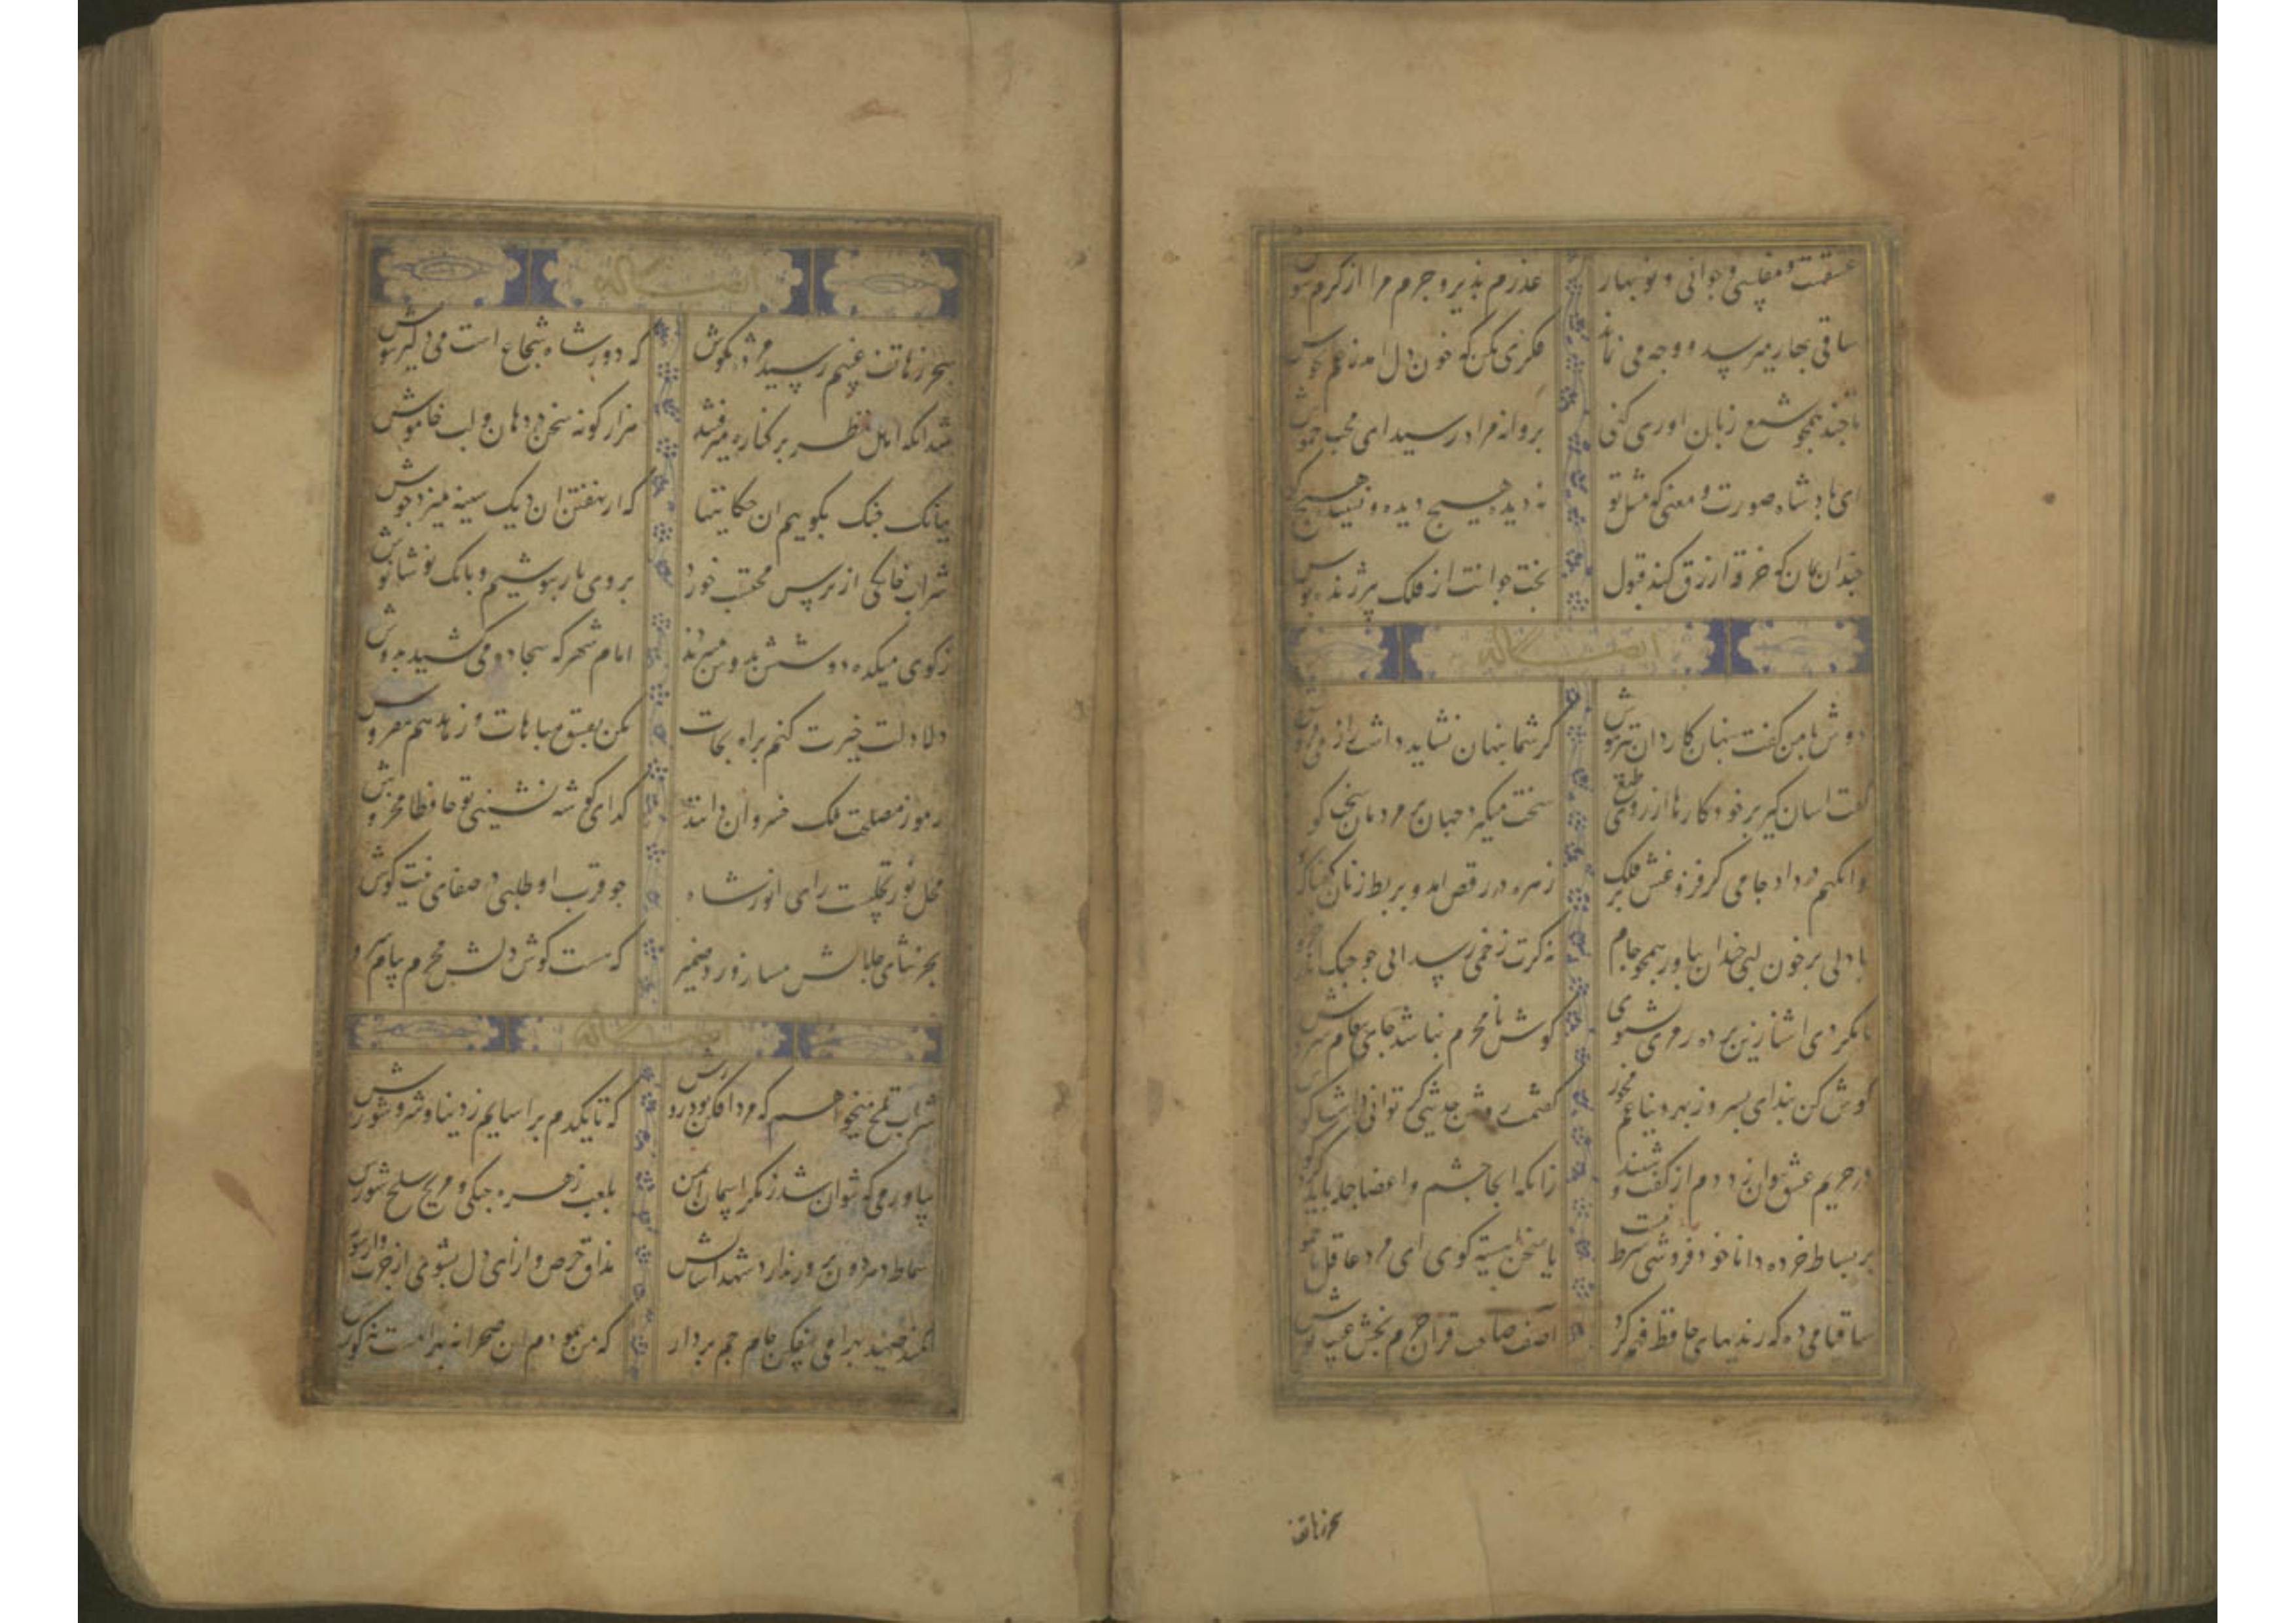 عشقست و مفلسی و جوانی و نوبهار عذرم بذیر و جرم مرا از کرم بپوش
ساقی بهار میرسد و وجه می نماند فکری بکن که خون دل آمد ز غم بجوش
تا چند همچو شمع زبان اوری کنی بروانه مراد رسید ای محب خموش
ای بادشاه صورت و معنی که مثل تو نه دیده هیچ دیده و نشنیده هیچ کوش
چندان بمان که خرقه ازرق کند قبول بخت جوانت از فلک پیر ژنده بوش
ایضاً له
دوش با من کفت بنهان کاردان تیزهوش کز شما بنهان نشاید داشت راز می فروش
کفت اسان کیر بر خود کارها از روی طبع سخت میکیرد جهان بر مردمان سخت کوش
وانکهم در داد جامی کز فروغش بر فلک زهره در رقص امد و بربط زنان کفتا که نوش
با دلی برخون لبی خندان بیاور همچو جام نه کرت زخمی رسد ایی جو جنک اندر خروش
تا نکردی اشنا زین برده رمزی نشنوی کوش نامحرم نباشد جای بیغام سروش
کوش کن بند ای بسر وز بهر دنیا غم مخور کفتمت روشن حدیثی کر توانی داشت کوش
در حریم عشق نتوان زد دم از کفت و شنید زانکه انجا جشم و اعضا جمله باید بود کوش
بر بساط خرده دانا خود فروشی شرط نیست یا سخن دانسته کوی ای مرد عاقل یا خموش
ساقیا می ده که رندیهای حافظ فهم کرد اصف صاحب قران جرم بخش عیب بوش
سحر ز هاتف
ایضاً له
سحر ز هاتف غیبم رسید مژده بکوش که دور شاه شجاع است می دلیر بنوش
شد انکه اهل نظر بر کناره میرفتند هزار کونه سخن در دهان و لب خاموش
ببانک جنک بکوییم ان حکایتها که از نهفتن ان دیک سینه میزد جوش
شراب خانکی از ترس محتسب خورده بروی یار بنوشیم و بانک نوشانوش
ز کوی میکده دوشش بدوش میبردند امام شهر که سجاده می کشید بدوش
دلا دلالت خیرت کنم براه نجات مکن بفسق مباهات و زهد هم مفروش
رموز مصلحت ملک خسروان دانند کدای کوشه نشینی تو حافظا مخروش
محل نور تجلیست رای انور شاه جو قرب او طلبی در صفای نیت کوش
بجز ثنای جلالش مساز ورد ضمیر که هست کوش دلش محرم پیام سروش
ایضاً له
شراب تلخ میخواهم که مردافکن بود زورش که تا یکدم براسایم ز دنیا و شر و شورش
بیاور می که نتوان شد ز مکر اسمان ایمن بلعب زهره جنکی و مریخ سلحشورش
سماط دهر دون برور ندارد شهد اسایش مذاق حرص و از ای دل بشوی از جرب و از شورش
کمند صید بهرامی بیفکن جام جم بردار که من بیمودم ان صحرا نه بهرامست نه کورش